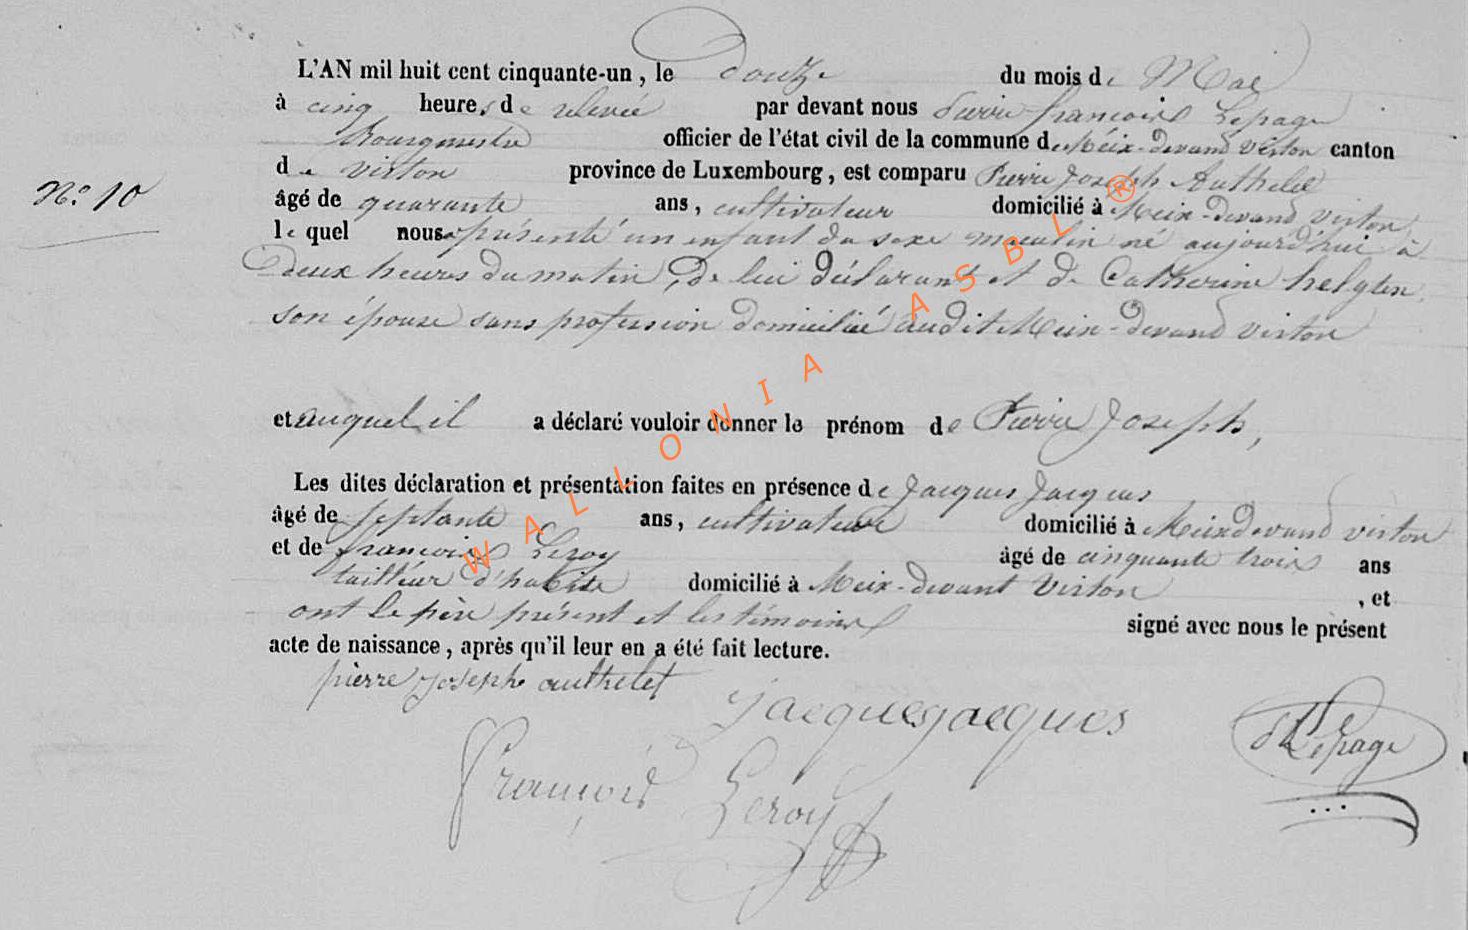 L'AN mil huit cent cinquante-un, le douze du mois de Mai
à cinq heures de relevée par devant nous Pierre françois Lepage
Bourgmestre officier de l'état civil de la commune de Meix-devant Virton canton
de virton province de Luxembourg, est comparu Pierre Joseph Authelet
N.o 10
âgé de quarante ans, cultivateur domicilié à Meix-devant virton
le quel nous a présenté un enfant du sexe masculin né aujourd'hui à
Deux heures du matin, De lui déclarant et de Catherine helglen
son épouse sans profession domiciliée audit Meix-devant virton
et auquel il a déclaré vouloir donner le prénom de Pierre Joseph,
Les dites déclaration et présentation faites en présence de Jacques Jacques
âgé de septante ans, cultivateur domicilié à Meix devant virton
et de françois Leroy âgé de cinquante trois ans
tailleur d'habits domicilié à Meix-devant Virton, et
ont le père présent et les témoins signé avec nous le présent
acte de naissance, après qu'il leur en a été fait lecture.
pièrre joseph authelet
jacques jacques
Lepage
François Leroy
WALLONIA ASBL ®